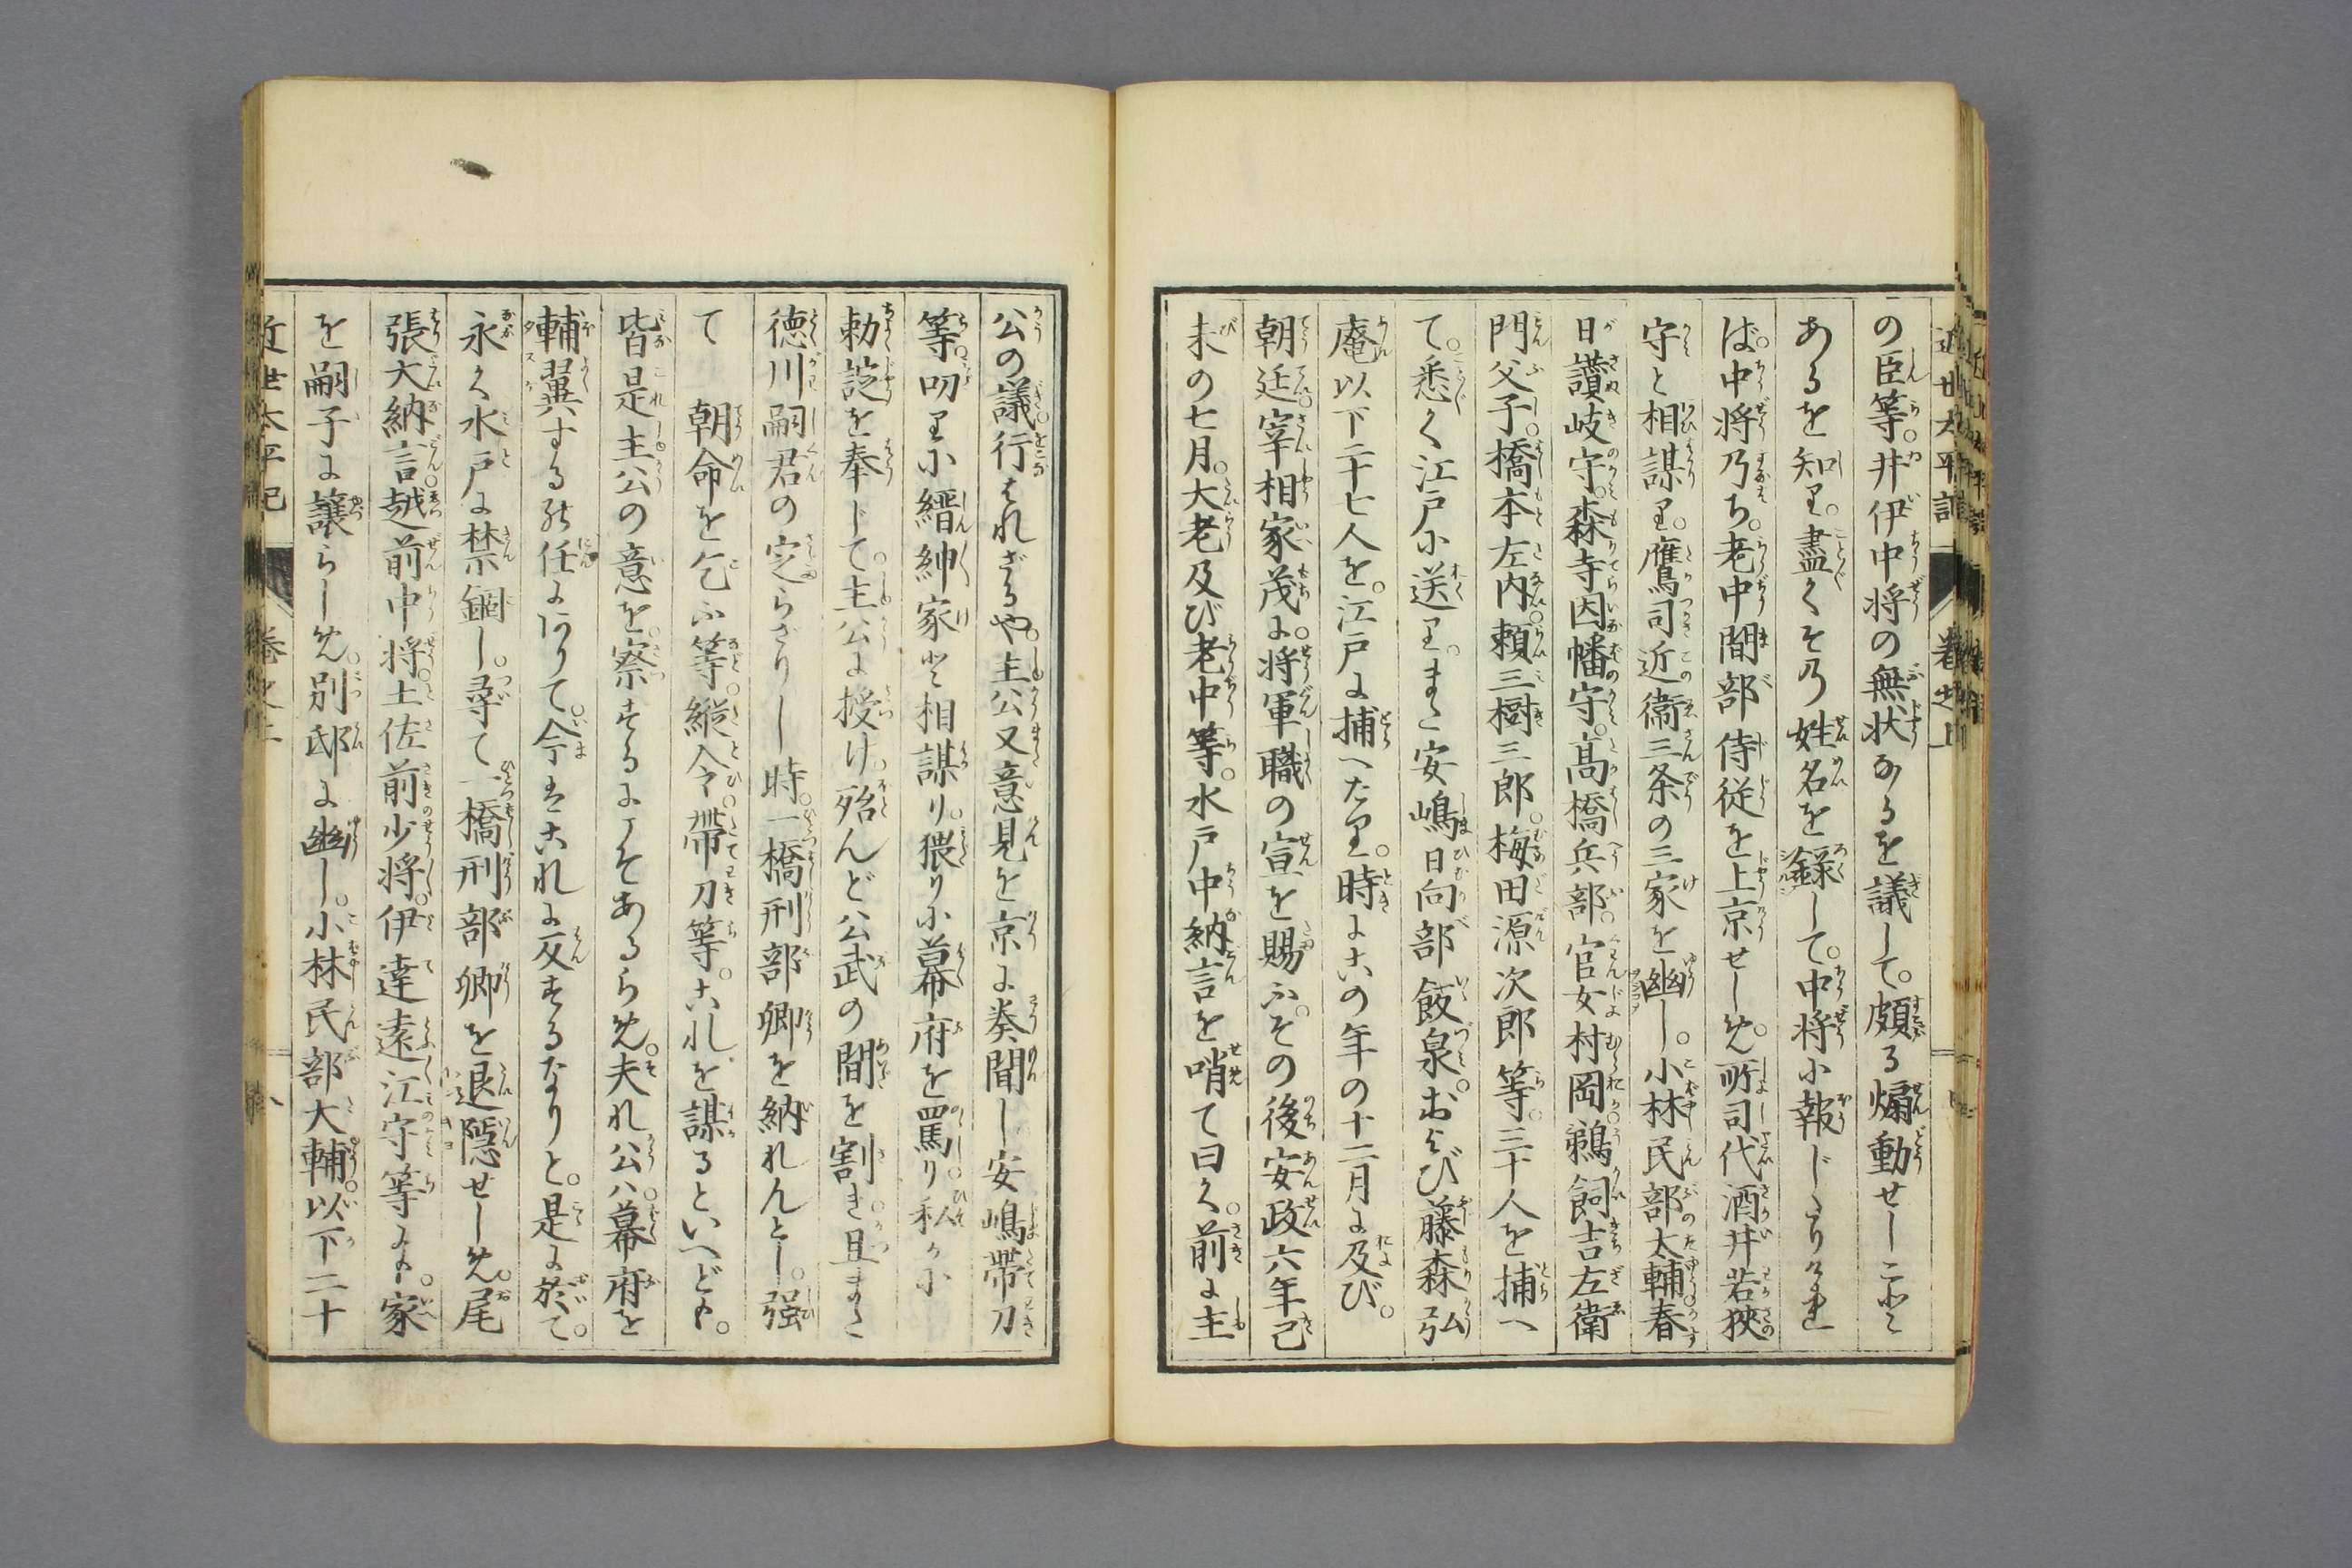 近世太平記 巻之上
の臣等。井伊中将の無状あるを議して。頗る煽動せしこと
あるを知り。盡くその姓名を録して。中将に報じたりけれ
ば。中将乃ち。老中間部侍従を上京せしめ。所司代酒井若狹
守と相謀り。鷹司近衞三条の三家を幽し。小林民部太輔春
日讃岐守。森寺因幡守。高橋兵部。官女村岡鵜飼吉左衛
門父子。橋本左内。頼三樹三郎。梅田源次郎等。三十人を捕へ
て。悉く江戸に送り。また安嶋日向部飯泉。および藤森弘
庵以下二十七人を。江戸に捕へたり。時にこの年の十二月に及び。
朝廷。宰相家茂に。将軍職の宣を賜ふ。その後安政六年己
未の七月。大老及び老中等。水戸中納言を哨て曰く。前に主
公の議行はれざるや。主公又意見を京に奏聞し安嶋帯刀
等。叨りに縉紳家と相謀り。猥りに幕府を罵り。私かに
勅諚を奉じて。主公に授け。殆んど公武の間を割き。且また
徳川嗣君の定らざりし時。一橋刑部卿を納れんとし。强
て 朝命を乞ふ等。縦令帯刀等。これを謀るといへども。
皆是主公の意を。察するによそあるらめ。夫れ公ハ。幕府を
輔翼する 任にありて。今はこれに反するなりと。是に於て。
永く水戸に禁錮し。尋て一橋刑部卿を退隠せしめ。尾
張大納言。越前中将。土佐前少将。伊達遠江守等に。家
を嗣子に譲らしめ。別邸に幽し。小林民部大輔。以下二十
近世太平記 巻之上 八